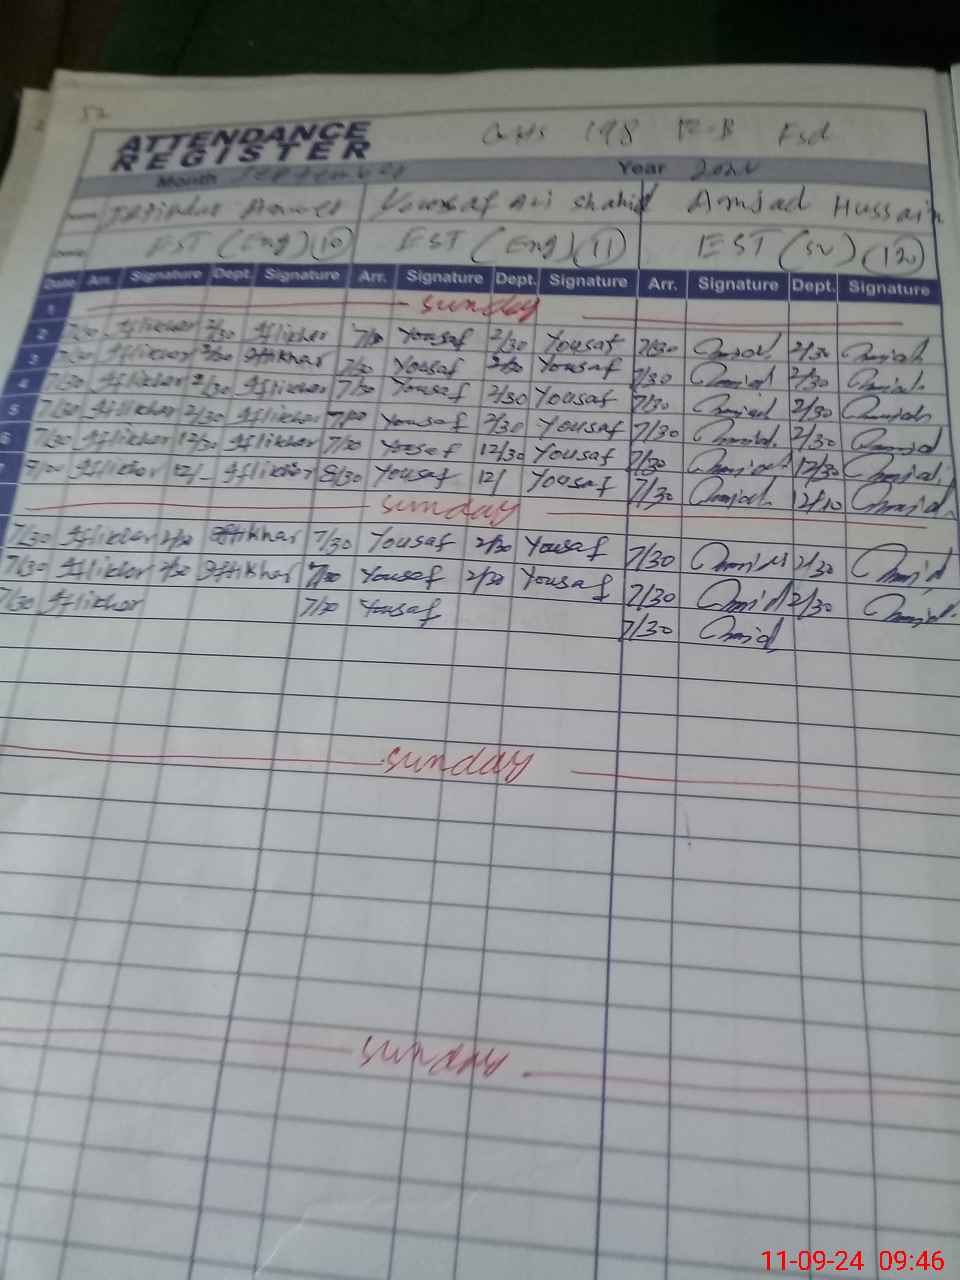 52
ATTENDANCE
REGISTER
198 R-B Fsd
Month September Year 2024
Yousaf Ali Shahid Amjad Hussain
EST (Eng) (10) EST (Eng) (11) EST (SV) (12)
Date Arr. Signature Dept. Signature Arr. Signature Dept. Signature Arr. Signature Dept. Signature
1 Sunday
2 7/30 Iftikhar 2/30 Iftikhar 7/30 Yousaf 2/30 Yousaf 7/30 Amjad 2/30 Amjad
3 7/30 Iftikhar 2/30 Iftikhar 7/30 Yousaf 2/30 Yousaf 7/30 Amjad 2/30 Amjad
4 7/30 Iftikhar 2/30 Iftikhar 7/30 Yousaf 2/30 Yousaf 7/30 Amjad 2/30 Amjad
5 7/30 Iftikhar 2/30 Iftikhar 7/30 Yousaf 2/30 Yousaf 7/30 Amjad 2/30 Amjad
6 7/30 Iftikhar 12/30 Iftikhar 7/30 Yousaf 12/30 Yousaf 7/30 Amjad 12/30 Amjad
Iftikhar 12/ Iftikhar 8/30 Yousaf 12/ Yousaf 7/30 Amjad Amjad
Sunday
7/30 Iftikhar 2/30 Iftikhar 7/30 Yousaf 2/30 Yousaf 7/30 Amjad 2/30 Amjad
7/30 Iftikhar 2/30 Iftikhar 7/30 Yousaf 2/30 Yousaf 7/30 Amjad 2/30 Amjad
7/30 Iftikhar 7/30 Yousaf 7/30 Amjad
Sunday
Sunday
11-09-24 09:46